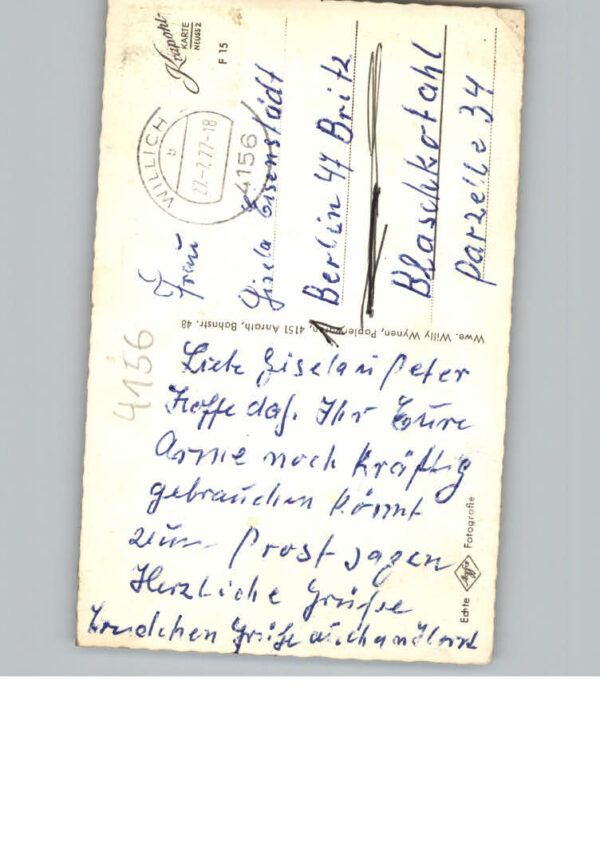 Krapohl
KARTE
NEUSS 2
F 15
WILLICH
b
22-7.77-18
4156
Frau
Gisela Eisenstädt
1 Berlin 47 Britz
Blaschkotahl
Parzelle 34
Wwe. Willy Wynen, 4151 Anrath, Bahnstr. 48
4156
Liebe Gisela u Peter
Hoffe daß Ihr Eure
Arme noch kräftig
gebrauchen könnt
zum Prost sagen
Herzliche Grüße
Trudchen Grüße auch an
Echte Agfa Fotografie